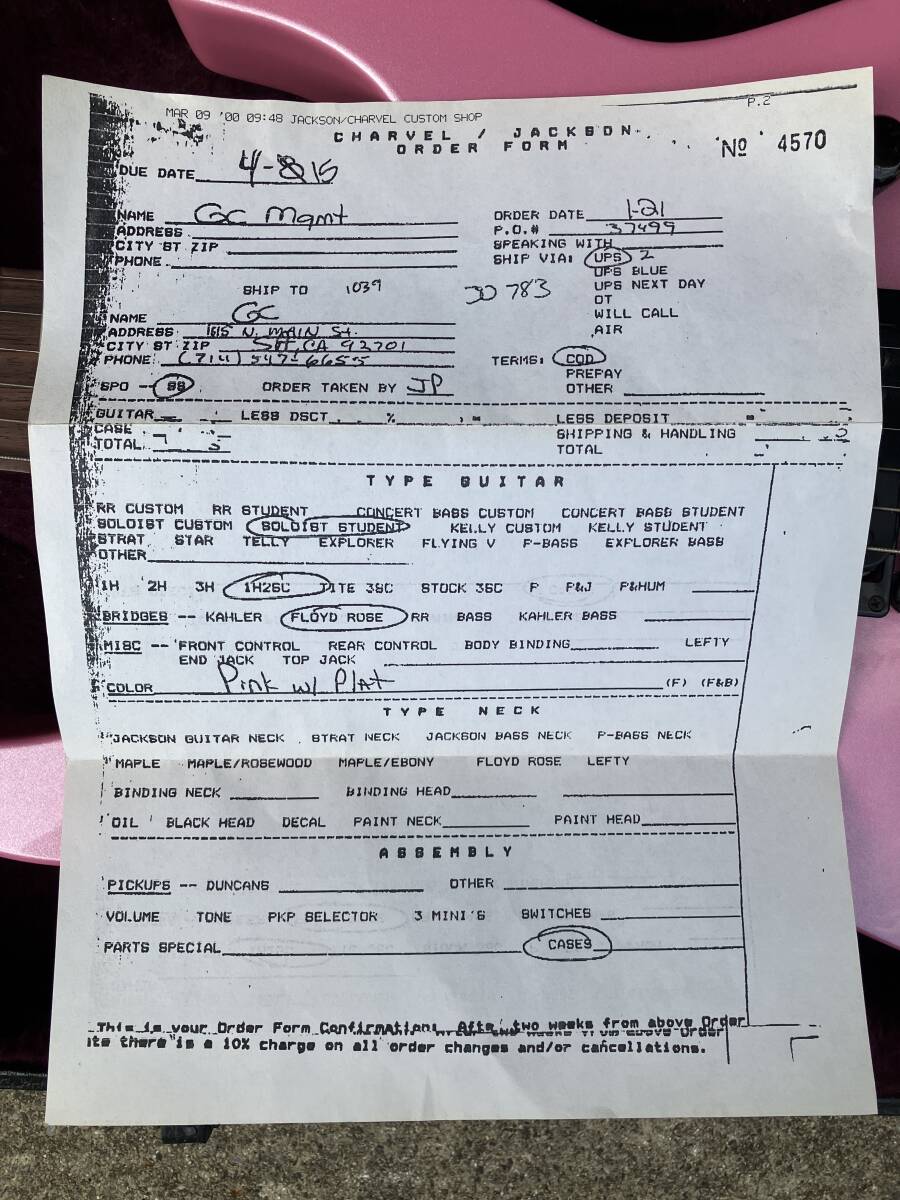 P.2
MAR 09 '00 09:48 JACKSON/CHARVEL CUSTOM SHOP
CHARVEL / JACKSON
ORDER FORM
Nº 4570
DUE DATE
NAME GC Mgmt
ORDER DATE 1-21
ADDRESS
P.O.# 37499
CITY ST ZIP
SPEAKING WITH
PHONE
SHIP VIA: UPS 2
UPS BLUE
SHIP TO 1039
30783
UPS NEXT DAY
OT
NAME GC
WILL CALL
ADDRESS 1615 N. MAIN St.
AIR
CITY ST ZIP CA 92701
PHONE (714) 547-6655
TERMS: COD
PREPAY
SPO -- SS ORDER TAKEN BY JP
OTHER
GUITAR LESS DSCT % = LESS DEPOSIT -
CASE SHIPPING & HANDLING
TOTAL TOTAL
TYPE GUITAR
RR CUSTOM RR STUDENT CONCERT BASS CUSTOM CONCERT BASS STUDENT
SOLOIST CUSTOM SOLOIST STUDENT KELLY CUSTOM KELLY STUDENT
STRAT STAR TELLY EXPLORER FLYING V P-BASS EXPLORER BASS
OTHER
1H 2H 3H 1H2SC TITE 3SC STOCK 3SC P P&J P&HUM
BRIDGES -- KAHLER FLOYD ROSE RR BASS KAHLER BASS
MISC -- FRONT CONTROL REAR CONTROL BODY BINDING LEFTY
END JACK TOP JACK
COLOR Pink w/ Plat (F) (F&B)
TYPE NECK
JACKSON GUITAR NECK STRAT NECK JACKSON BASS NECK P-BASS NECK
MAPLE MAPLE/ROSEWOOD MAPLE/EBONY FLOYD ROSE LEFTY
BINDING NECK BINDING HEAD
OIL BLACK HEAD DECAL PAINT NECK PAINT HEAD
ASSEMBLY
PICKUPS -- DUNCANS OTHER
VOLUME TONE PKP SELECTOR 3 MINI'S SWITCHES
PARTS SPECIAL CASES
This is your Order Form Confirmation. two weeks from above Order
there is a 10% charge on all order changes and/or cancellations.